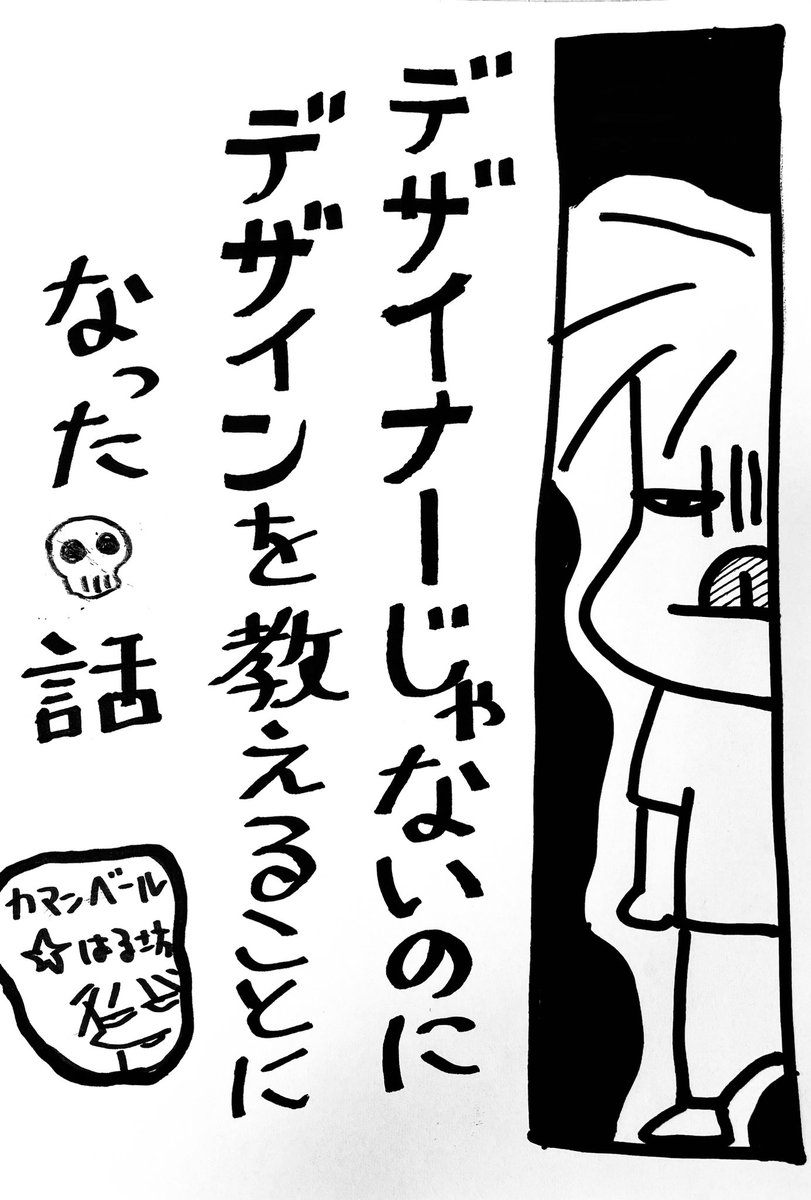 デザイナーじゃないのに
デザインを教えることに
なった
話
カマンベール
☆はる坊